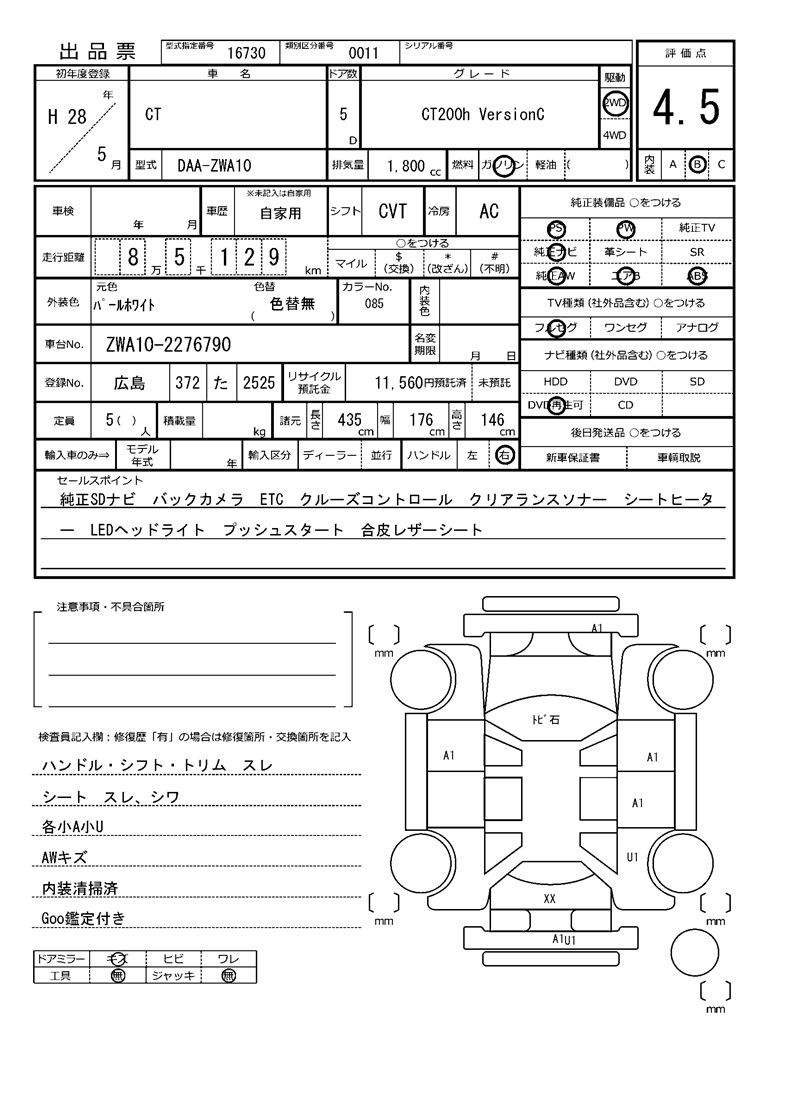 出品票 型式指定番号 16730 類別区分番号 0011 シリアル番号
評価点
4.5
内装 A B C
初年度登録 車名 ドア数 グレード 駆動
H 28 年 5 月 CT 5 D CT200h VersionC 2WD 4WD
型式 DAA-ZWA10 排気量 1,800 cc 燃料 ガソリン 軽油 ( )
車検 年 月 車歴 ※未記入は自家用 自家用 シフト CVT 冷房 AC
走行距離 8 万 5 千 1 2 9 km ○をつける
マイル $ (交換) * (改ざん) # (不明)
外装色 元色 パールホワイト 色替 色替無 ( ) カラーNo. 085 内装色
車台No. ZWA10-2276790 名変期限 月 日
登録No. 広島 372 た 2525 リサイクル預託金 11,560円預託済 未預託
定員 5 ( ) 人 積載量 kg 諸元 長さ 435 cm 幅 176 cm 高さ 146 cm
輸入車のみ⇒ モデル年式 年 輸入区分 ディーラー 並行 ハンドル 左 右
純正装備品 ○をつける
PS PW 純正TV
純正ナビ 革シート SR
純正AW エアB ABS
TV種類(社外品含む)○をつける
フルセグ ワンセグ アナログ
ナビ種類(社外品含む)○をつける
HDD DVD SD
DVD再生可 CD
後日発送品 ○をつける
新車保証書 車輌取説
セールスポイント
純正SDナビ バックカメラ ETC クルーズコントロール クリアランスソナー シートヒータ
ー LEDヘッドライト プッシュスタート 合皮レザーシート
注意事項・不具合箇所
検査員記入欄:修復歴「有」の場合は修復箇所・交換箇所を記入
ハンドル・シフト・トリム スレ
シート スレ、シワ
各小A小U
AWキズ
内装清掃済
Goo鑑定付き
ドアミラー キズ ヒビ ワレ
工具 無 ジャッキ 無
A1
mm
mm
トビ石
A1
A1
A1
U1
XX
mm
mm
A1U1
mm